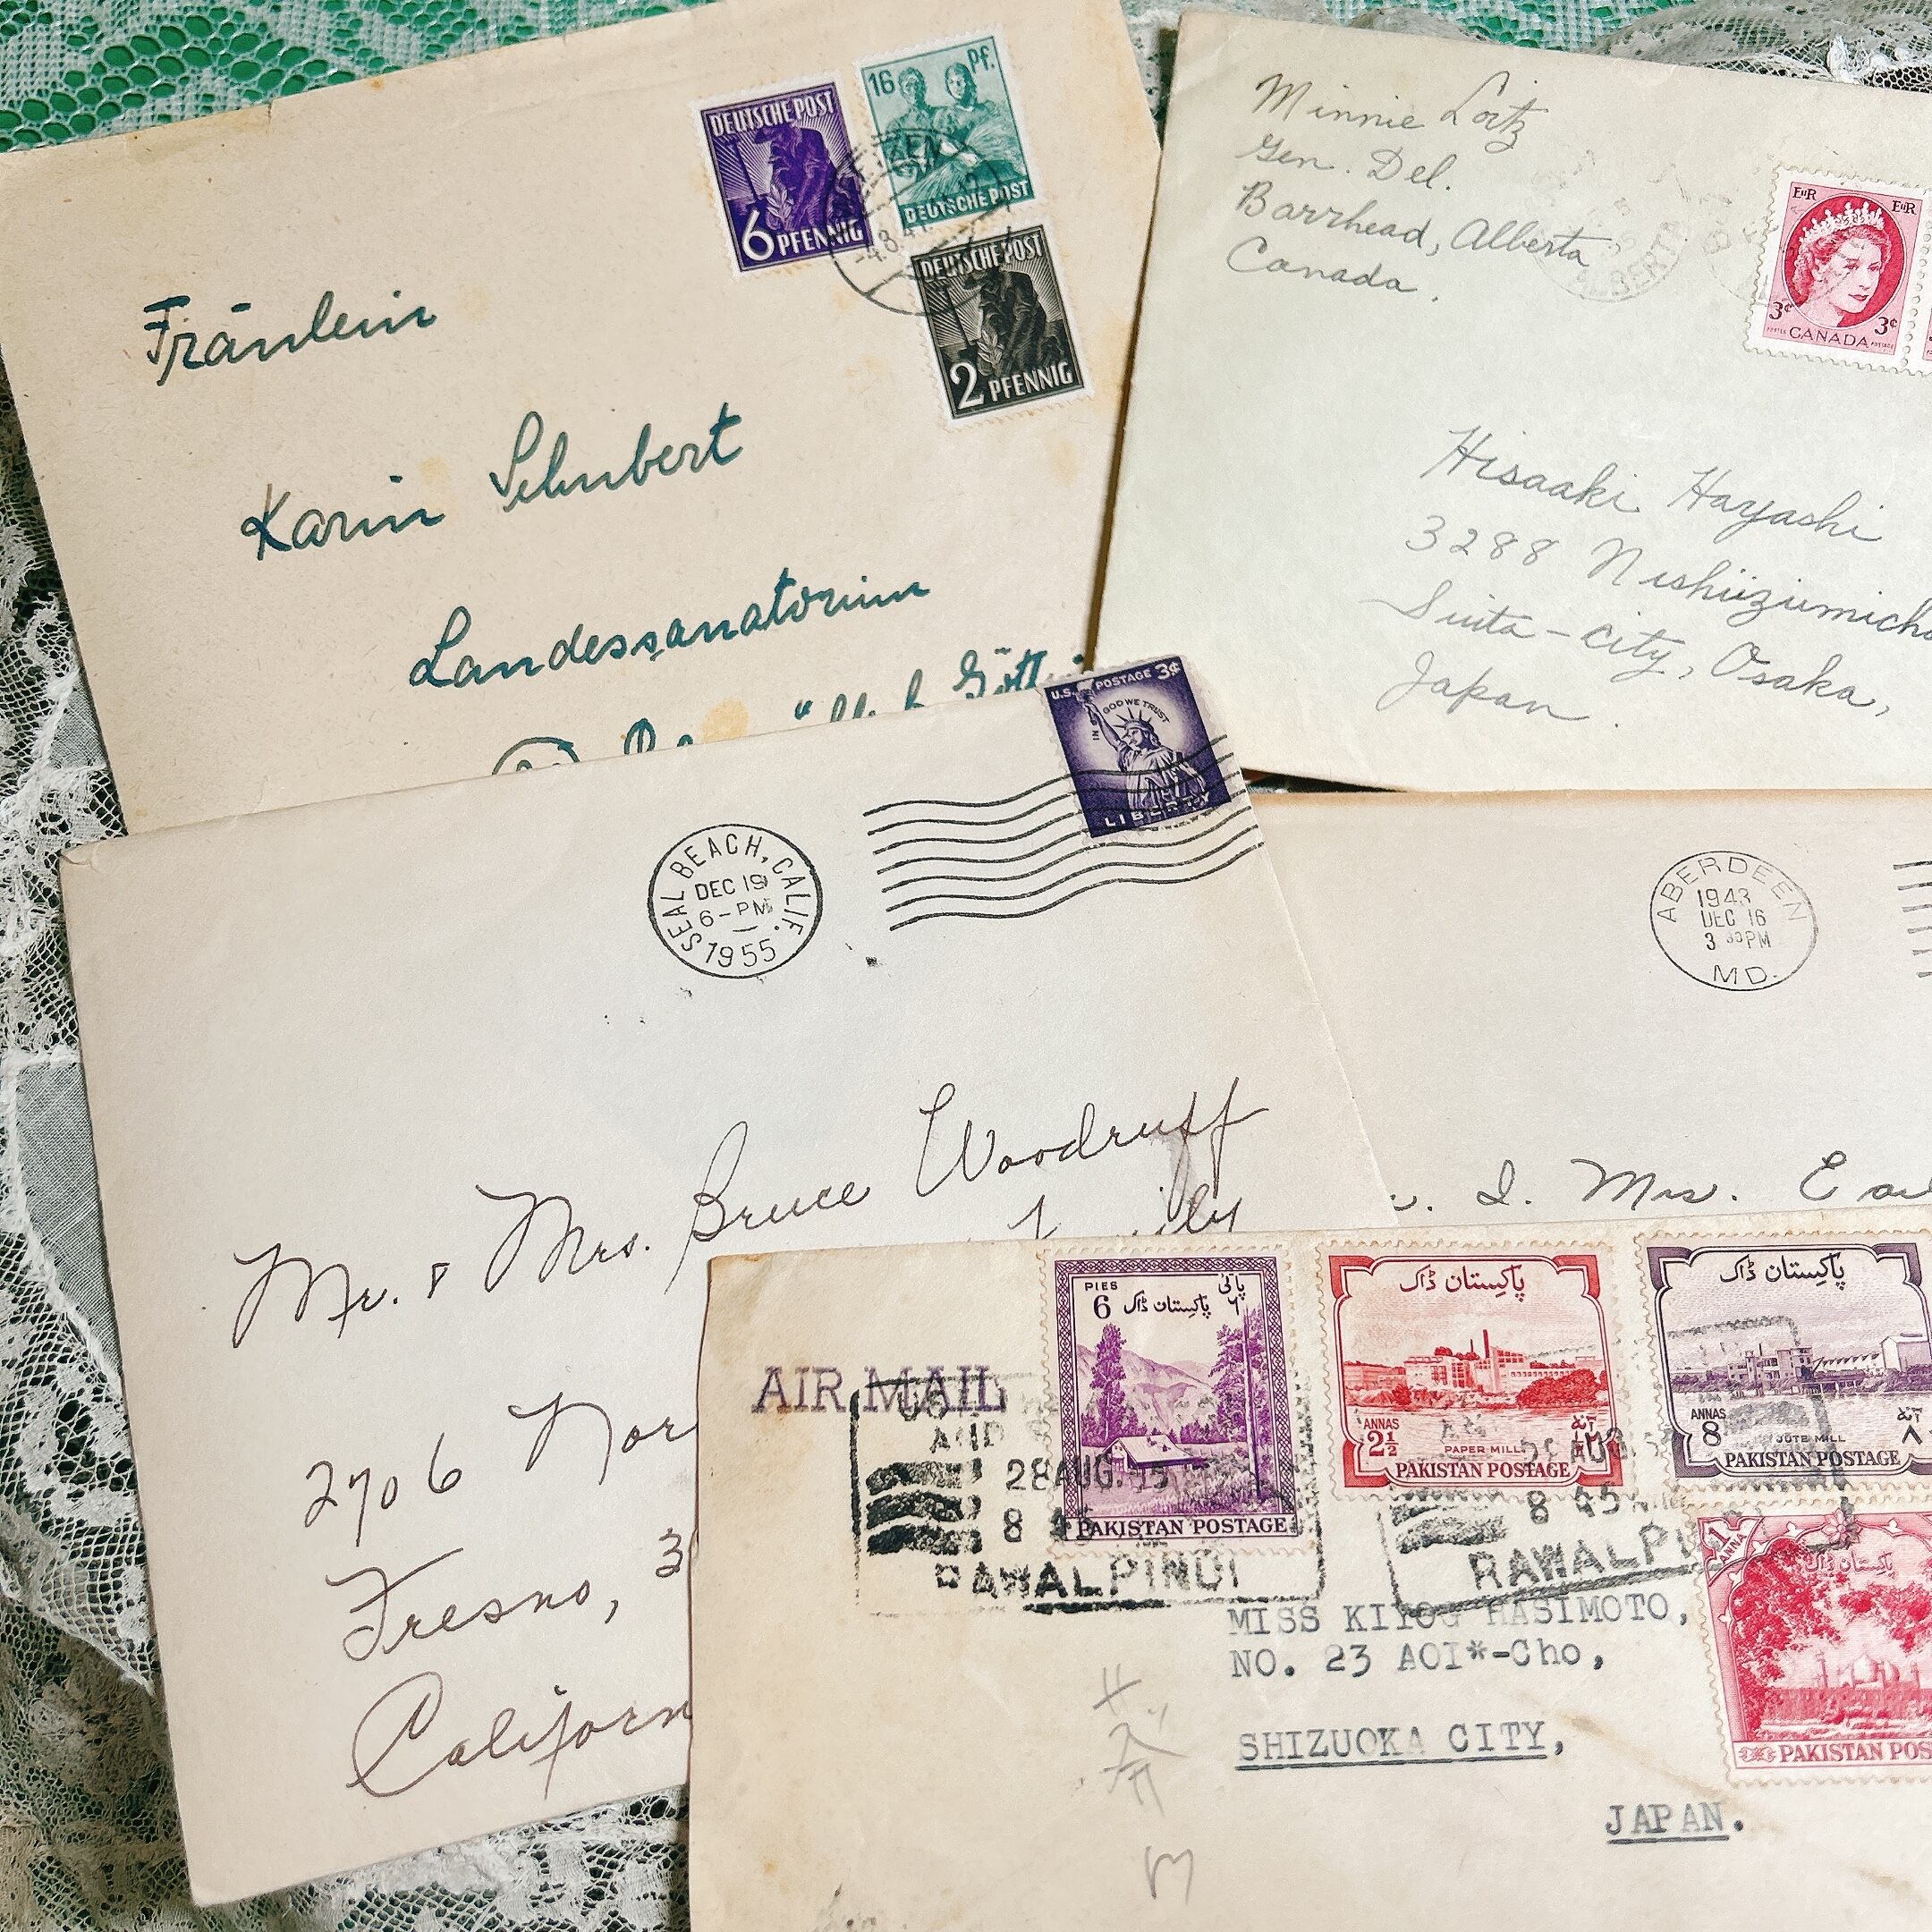 DEUTSCHE POST
6 PFENNIG
16 Pf.
DEUTSCHE POST
DEUTSCHE POST
2 PFENNIG
Fräulein
Karin Schubert
Landessanatorium
Minnie Loitz
Gen. Del.
Barrhead, Alberta
Canada.
EIIR EIIR
3¢ 3¢
CANADA
Hisaaki Hayashi
3288 Nishiizumicho
Suita-city, Osaka,
Japan.
U.S. POSTAGE 3¢
IN GOD WE TRUST
LIBERTY
SEAL BEACH, CALIF.
DEC 19
6-PM
1955
Mr. & Mrs. Bruce Woodruff
2706 Nor
Fresno, 3
Californ
ABERDEEN
1943
DEC 16
3 30 PM
MD.
. & Mrs. Ea
AIR MAIL
PIES پائی
6 پاکستان ڈاک ٦
PAKISTAN POSTAGE
پاکستان ڈاک
ANNAS آنہ
2½
PAPER MILL
PAKISTAN POSTAGE
پاکستان ڈاک
ANNAS آنہ
8 ٨
JUTE MILL
PAKISTAN POSTAGE
28 AUG.
8 45
RAWALPINDI
AUG
8 45
RAWALPI
1 ANNA
PAKISTAN POS
MISS KIYOO HASIMOTO,
NO. 23 AOI*-Cho,
SHIZUOKA CITY,
JAPAN.